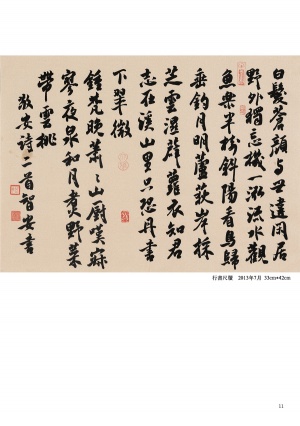 白髮蒼顏與世違閑居
野外獨忘機一泓流水觀
魚樂半斜陽看鳥歸
垂釣月明蘆荻岸採
芝雲濕薜蘿衣知君
志在溪山里只恐丹書
下翠微
鍾梵晚蕭〻山廚嘆寂
寥夜泉和月煮野菜
帶雲挑
敬安詩二首智安書
行書尺牘 2013年7月 33cm×42cm
11